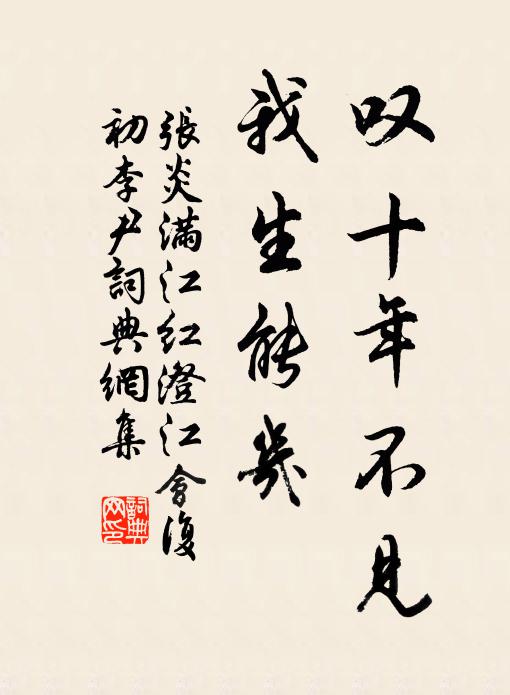 叹十年不見
我生能幾
張炎滿江紅澄江會復
初李尹詞典網集
詞典
网印